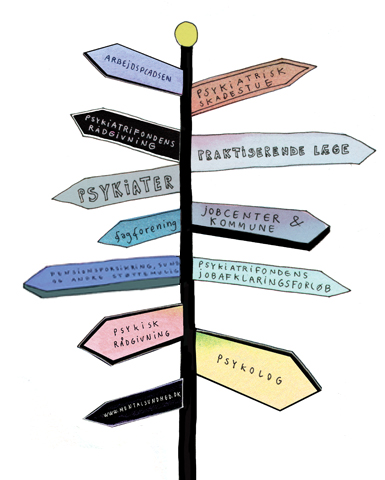 ARBEJDSPLADSEN
PSYKIATRISK
SKADESTUE
PSYKIATRIFONDENS
RÅDGIVNING
PRAKTISERENDE LÆGE
PSYKIATER
JOBCENTER &
KOMMUNE
fagforening
PENSIONSFORSIKRING, SUND
OG ANDRE STØTTEMULIG
PSYKIATRIFONDENS
JOBAFKLARINGSFORLØB
PSYKISK
RÅDGIVNING
PSYKOLOG
WWW.MENTALSUNDHED.DK